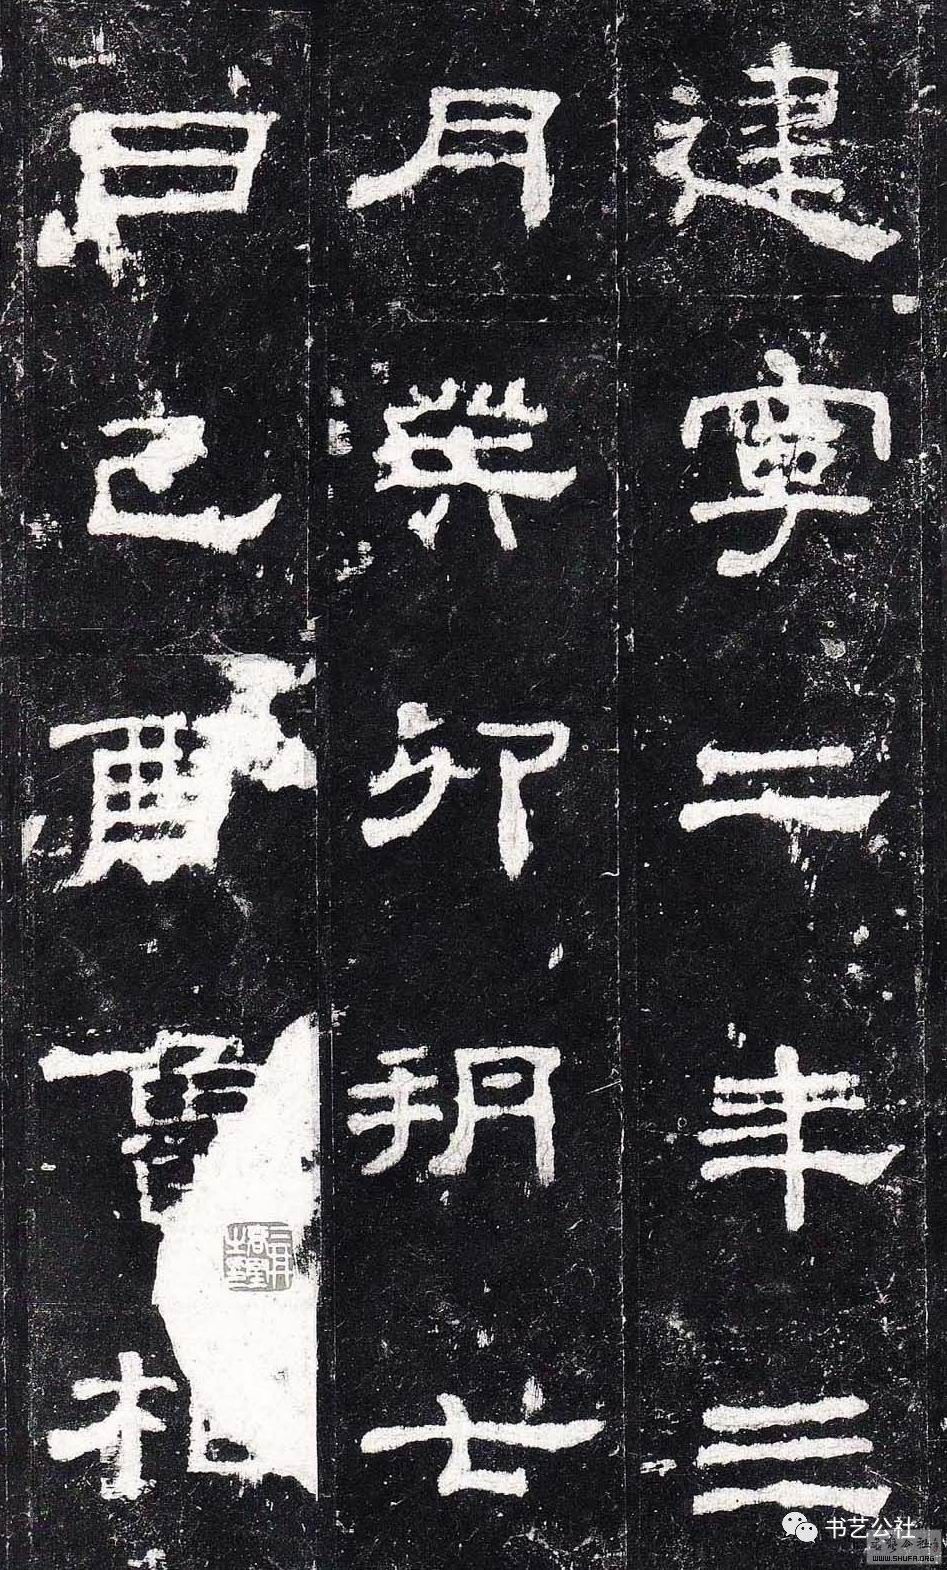 建寧二年三
月癸卯朔七
日己酉魯相
书艺公社
WWW.SHUFA.ORG